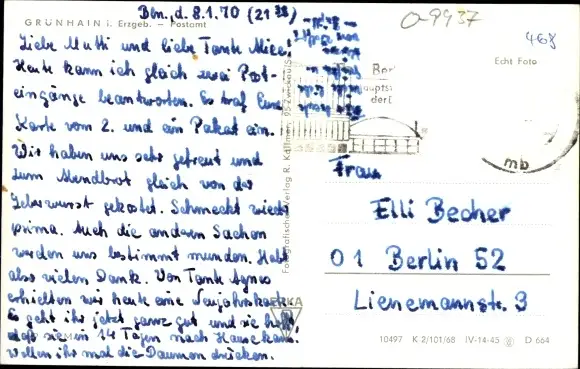 Bln., d. 8.1.70 (21 38)
GRÜNHAIN i. Erzgeb. - Postamt
Liebe Mutti und liebe Tante Mieze!
Heute kann ich gleich zwei Post-
eingänge beantworten. Es traf Eure
Karte vom 2. und ein Paket ein.
Wir haben uns sehr gefreut und
zum Abendbrot gleich von der
Leberwurst gekostet. Schmeckt wieder
prima. Auch die anderen Sachen
werden uns bestimmt munden. Habt
also vielen Dank. Von Tante Agnes
erhielten wir heute eine Neujahrskarte.
Es geht ihr jetzt ganz gut und sie hofft,
daß sie in 14 Tagen nach Hause kann.
Wollen ihr mal die Daumen drücken.
Fotografischer Verlag R. Kallmer, 95 Zwickau/S
ERKA
O-9937
468
Echt Foto
Ber
haupts
der D
mb
Frau
Elli Becher
01 Berlin 52
Lienemannstr. 9
10497 K 2/101/68 IV-14-45 D 664